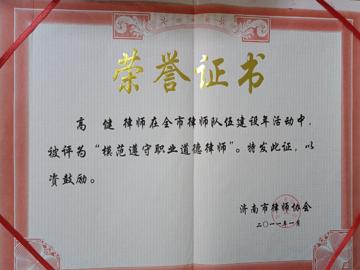 荣誉证书
高 健 律师在全市律师队伍建设年活动中，
被评为“模范遵守职业道德律师”。特发此证，以
资鼓励。
济南市律师协会
二〇一一年一月